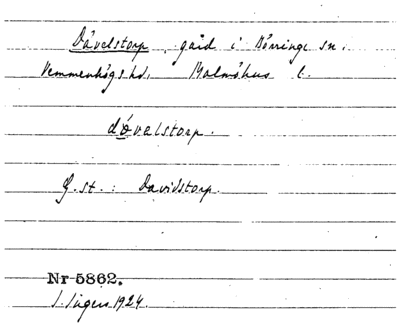 Dåvelstorp, gård i Börringe sn.
Vemmenhögs hd. Malmöhus l.
dövalstorp.
G. st.: Davidstorp.
Nr 5862.
1924.